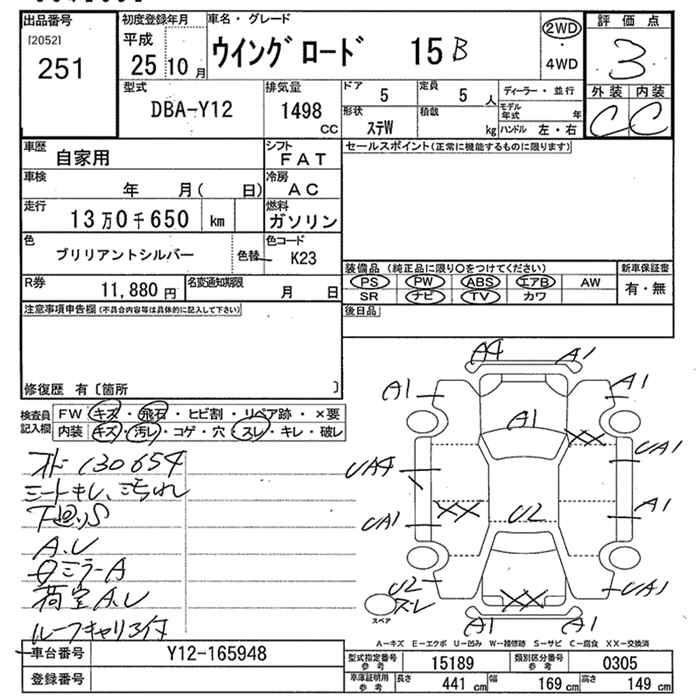 出品番号
[2052]
251
初度登録年月
平成
25 10 月
車名・グレード
ウイングロード 15B
2WD
・
4WD
評価点
3
外装 内装
C C
型式
DBA-Y12
排気量
1498
CC
ドア
5
定員
5 人
形状
ステW
積載
kg
ディーラー・並行
モデル年式 年
ハンドル 左・右
車歴
自家用
シフト
FAT
車検
年 月( 日)
冷房
AC
走行
13万0千650 km
燃料
ガソリン
色
ブリリアントシルバー
色替
色コード
K23
R券
11,880 円
名変通知期限
月 日
セールスポイント(正常に機能するものに限ります)
装備品 (純正品に限り○をつけてください)
PS PW ABS エアB AW
SR ナビ TV カワ
新車保証書
有・無
後日品
注意事項申告欄(不具合内容等は具体的に記入して下さい)
修復歴 有〔箇所 〕
検査員記入欄
FW キズ・飛石・ヒビ割・リペア跡・×要
内装 キズ・汚レ・コゲ・穴・スレ・キレ・破レ
オド130654
シートキレ、汚れ
下廻りS
A.U
ミラーA
荷室A.U
ルーフキャリア付
A4 A1
A1 A1
A1
XX
UA1
UA4
A1
XX
UA1 U2
U2
スレ
スペア
XX
UA1
A1 A1
A-キズ E-エクボ U-凹み W-補修跡 S-サビ C-腐食 XX-交換済
車台番号
Y12-165948
登録番号
型式指定番号参考
15189
類別区分番号参考
0305
車庫証明用参考
長さ 441 cm 幅 169 cm 高さ 149 cm